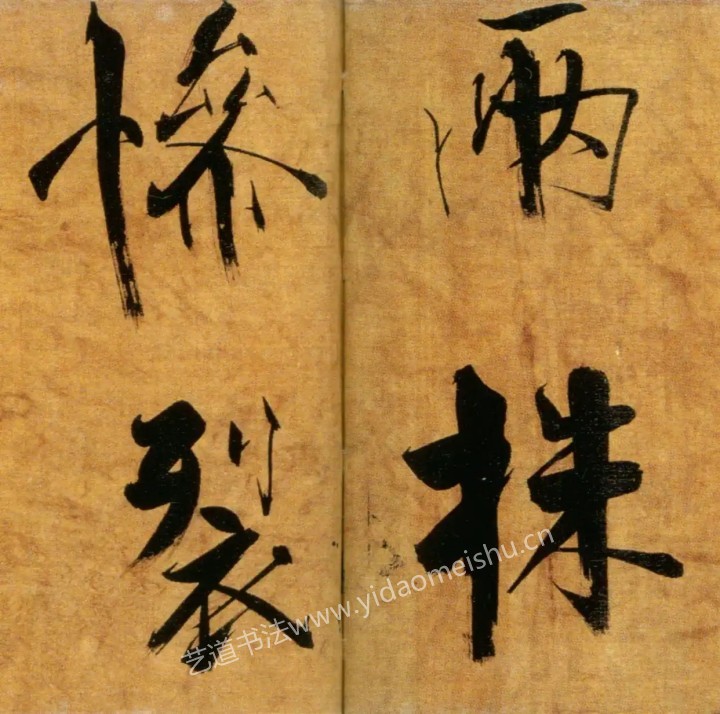 兩株
慘裂
艺道书法www.yidaomeishu.cn